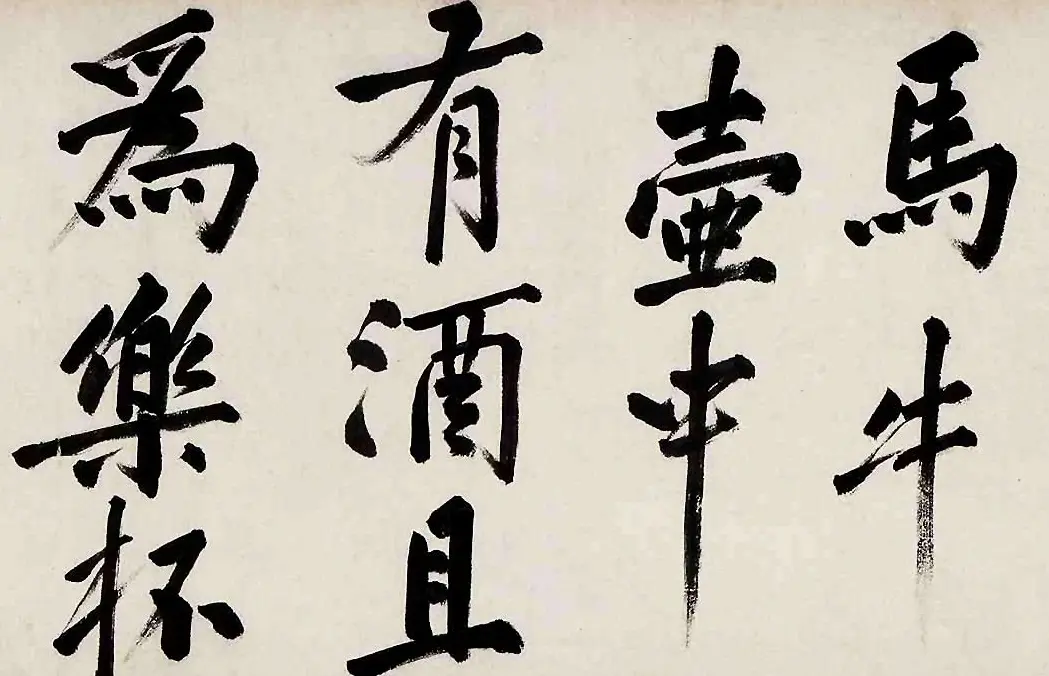 馬牛
壺中
有酒且
為樂杯